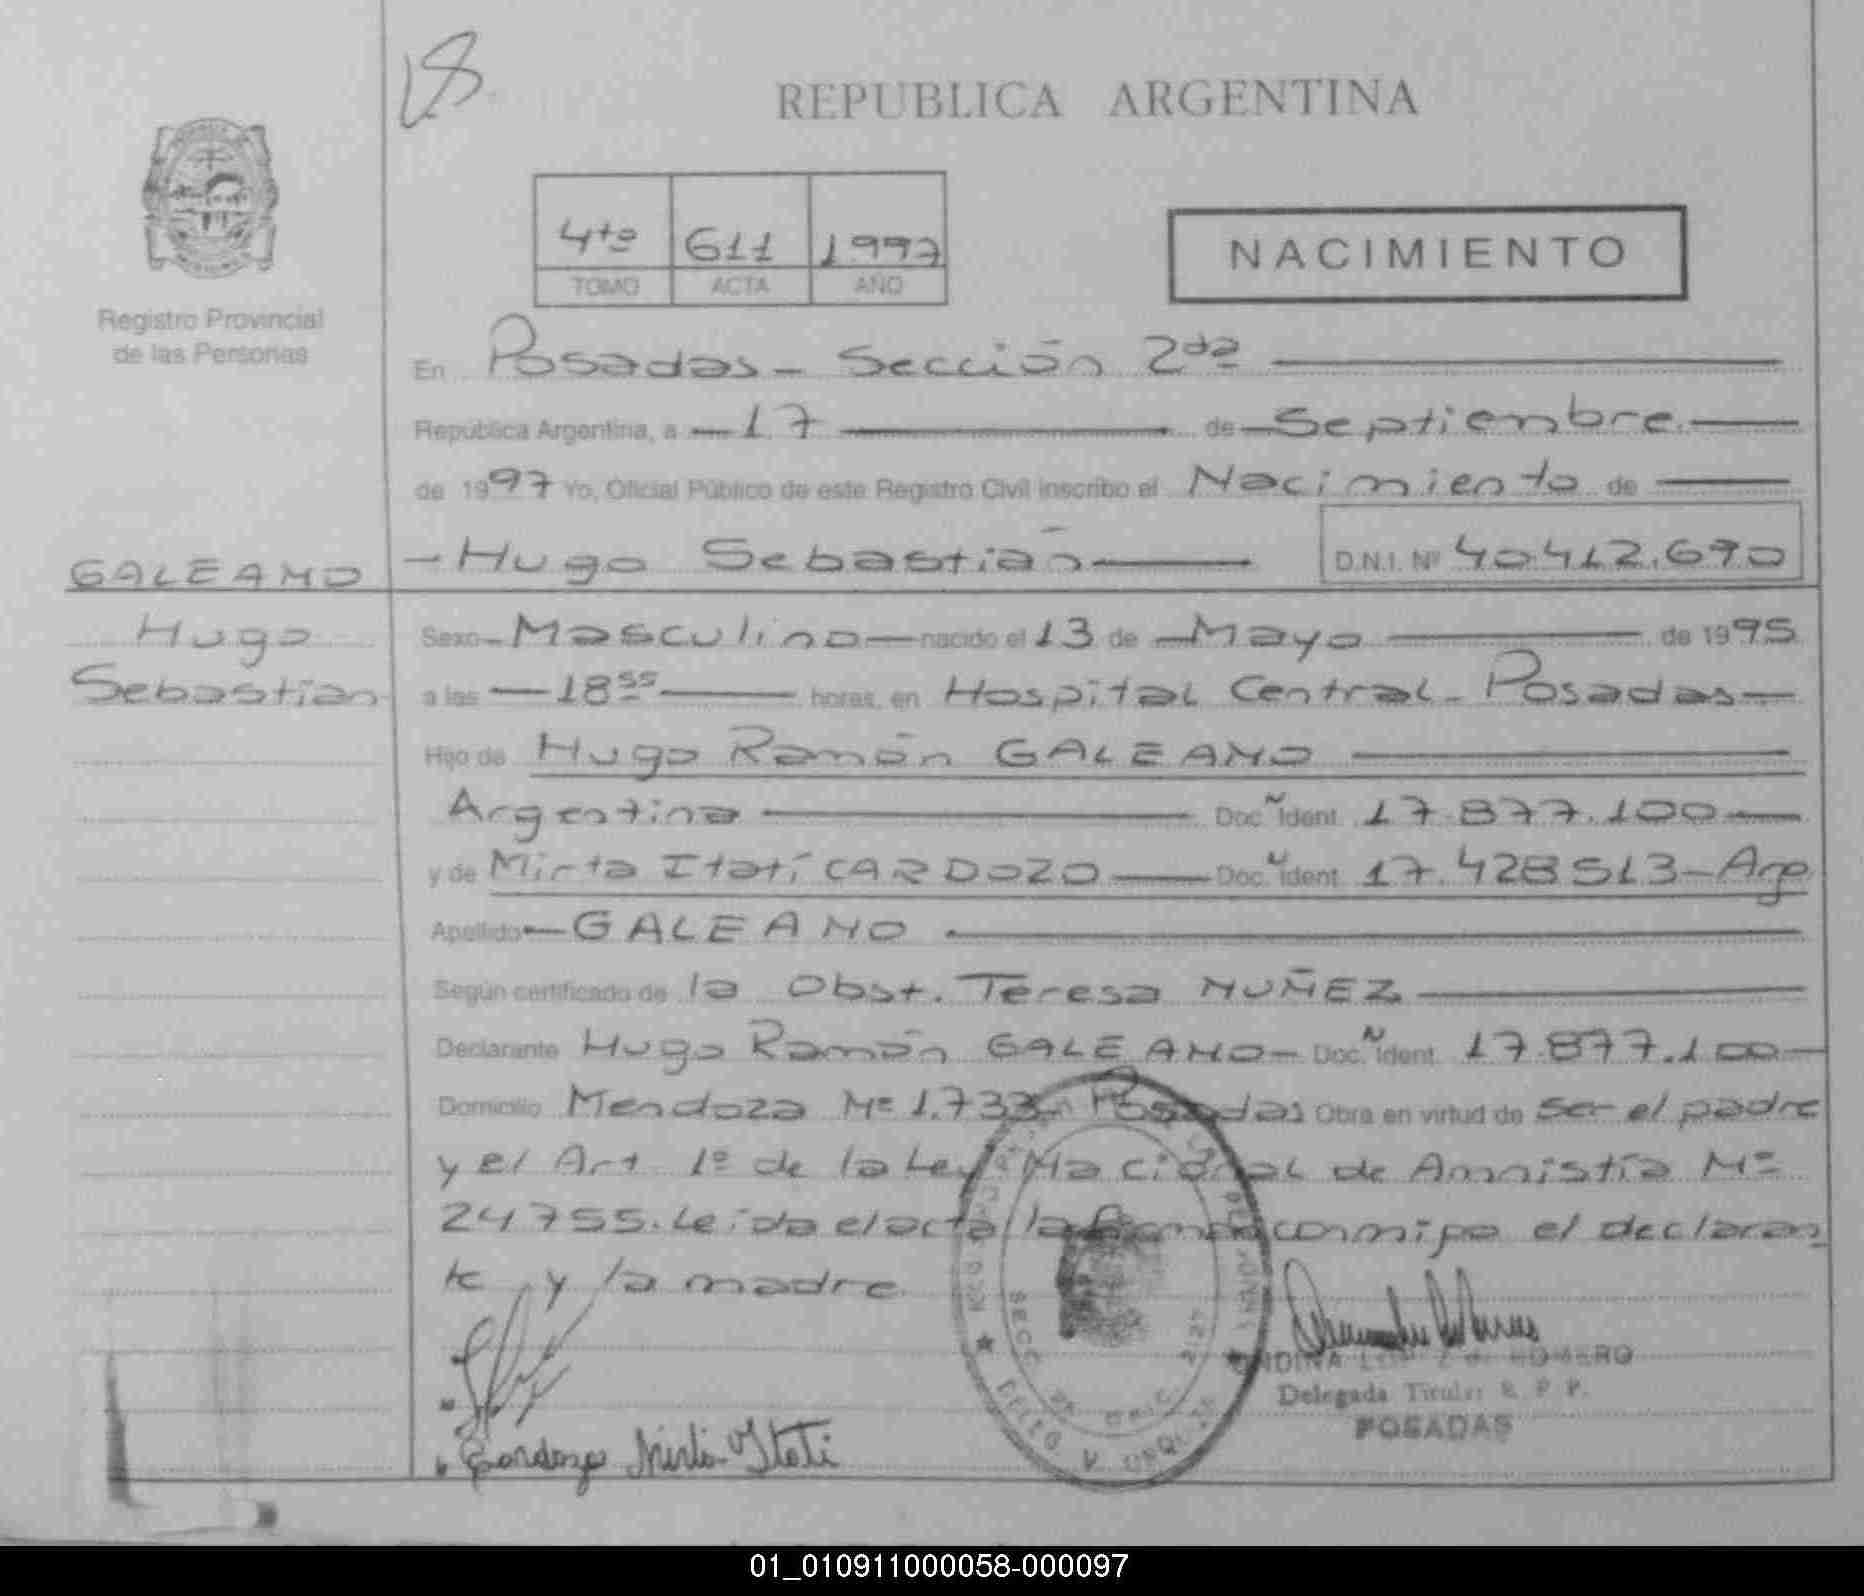 18
REPUBLICA ARGENTINA
4to 611 1997
TOMO ACTA AÑO
NACIMIENTO
Registro Provincial
de las Personas
En Posadas - Sección 2da
República Argentina, a 17 de Septiembre
de 1997 Yo, Oficial Público de este Registro Civil inscribo el Nacimiento de
GALEANO
Hugo
Sebastian
Hugo Sebastián D.N.I. Nº 40.412.690
Sexo Masculino nacido el 13 de Mayo de 1995
a las 18 55 horas, en Hospital Central - Posadas
Hijo de Hugo Ramón GALEANO
Argentina Doc. Ident. 17.877.100
y de Mirta Itatí CARDOZO Doc. Ident. 17.428513 - Arg
Apellido GALEANO
Según certificado de la Obst. Teresa NUÑEZ
Declarante Hugo Ramón GALEANO - Doc. Ident. 17.877.100
Domicilio Mendoza Nº 1.733 Posadas Obra en virtud de ser el padre
y el Art 1º de la Ley Nacional de Amnistía Nº
24755. Leida el acta la firman conmigo el declaran
te y la madre
Cardozo Mirta Itati
ONDINA
Delegada Titular R. P. P.
POSADAS
01_010911000058-000097